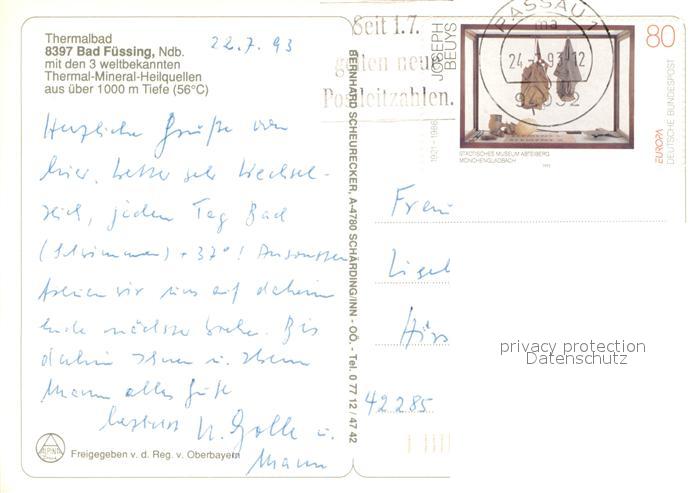 Thermalbad
8397 Bad Füssing, Ndb.
mit den 3 weltbekannten
Thermal-Mineral-Heilquellen
aus über 1000 m Tiefe (56°C)
22.7.93
Herzliche Grüße von
hier. Wetter sehr Wechsel-
reich, jeden Tag Bad
(Schwimmen) + 37°! Ansonsten
freuen wir uns auf daheim
Ende nächster Woche. Bis
dahin Ihnen u. Ihrem
Mann alles Gute
U. Golle u.
Mann
ALPINA
Freigegeben v. d. Reg. v. Oberbayern
BERNHARD SCHEURECKER, A-4780 SCHÄRDING/INN - OÖ. - Tel. 0 77 12 / 47 42
Seit 1.7.
gelten neue
Postleitzahlen.
PASSAU 1
ma
24.-7.93-12
94032
JOSEPH
BEUYS
1921-1986
80
DEUTSCHE BUNDESPOST
EUROPA
STÄDTISCHES MUSEUM ABTEIBERG
MÖNCHENGLADBACH
1993
Frau
Lisel
42285
privacy protection
Datenschutz